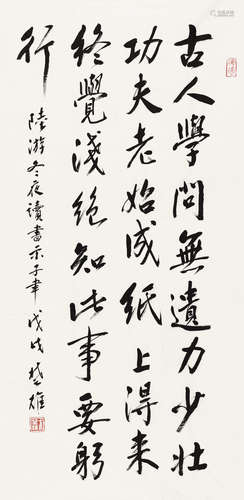 古人學問無遺力少壯
功夫老始成紙上得来
終覺淺絶知此事要躬
行
陸游冬夜讀書示子聿 戊戌 楚雄